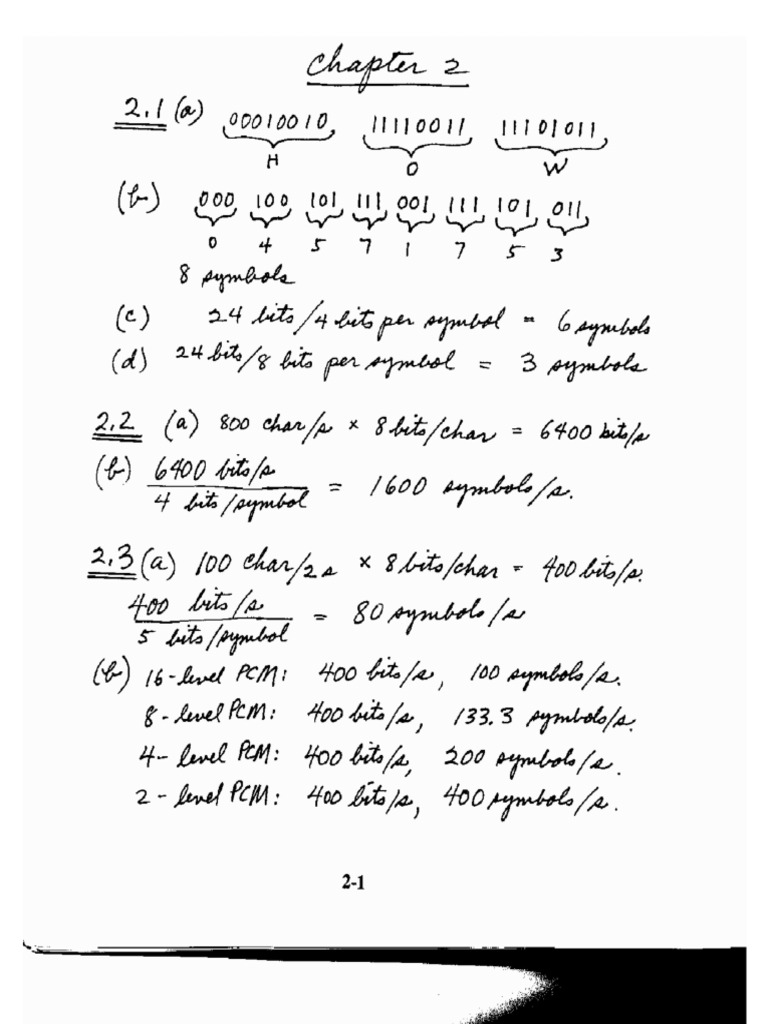 Chapter 2
2.1 (a) 00010010 11110011 11101011
H O W
(b) 000 100 101 111 001 111 101 011
0 4 5 7 1 7 5 3
8 symbols
(c) 24 bits/4 bits per symbol = 6 symbols
(d) 24 bits/8 bits per symbol = 3 symbols
2.2 (a) 800 char/s × 8 bits/char = 6400 bits/s
(b) 6400 bits/s
4 bits/symbol = 1600 symbols/s.
2.3 (a) 100 char/2s × 8 bits/char = 400 bits/s.
400 bits/s
5 bits/symbol = 80 symbols/s
(b) 16-level PCM: 400 bits/s, 100 symbols/s.
8-level PCM: 400 bits/s, 133.3 symbols/s.
4-level PCM: 400 bits/s, 200 symbols/s.
2-level PCM: 400 bits/s, 400 symbols/s.
2-1